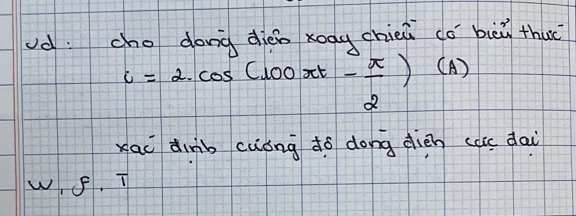 vd: cho dòng điện xoay chiều có biểu thức
i = 2.cos (100πt - π/2) (A)
xác định cường độ dòng điện cực đại
W, f, T